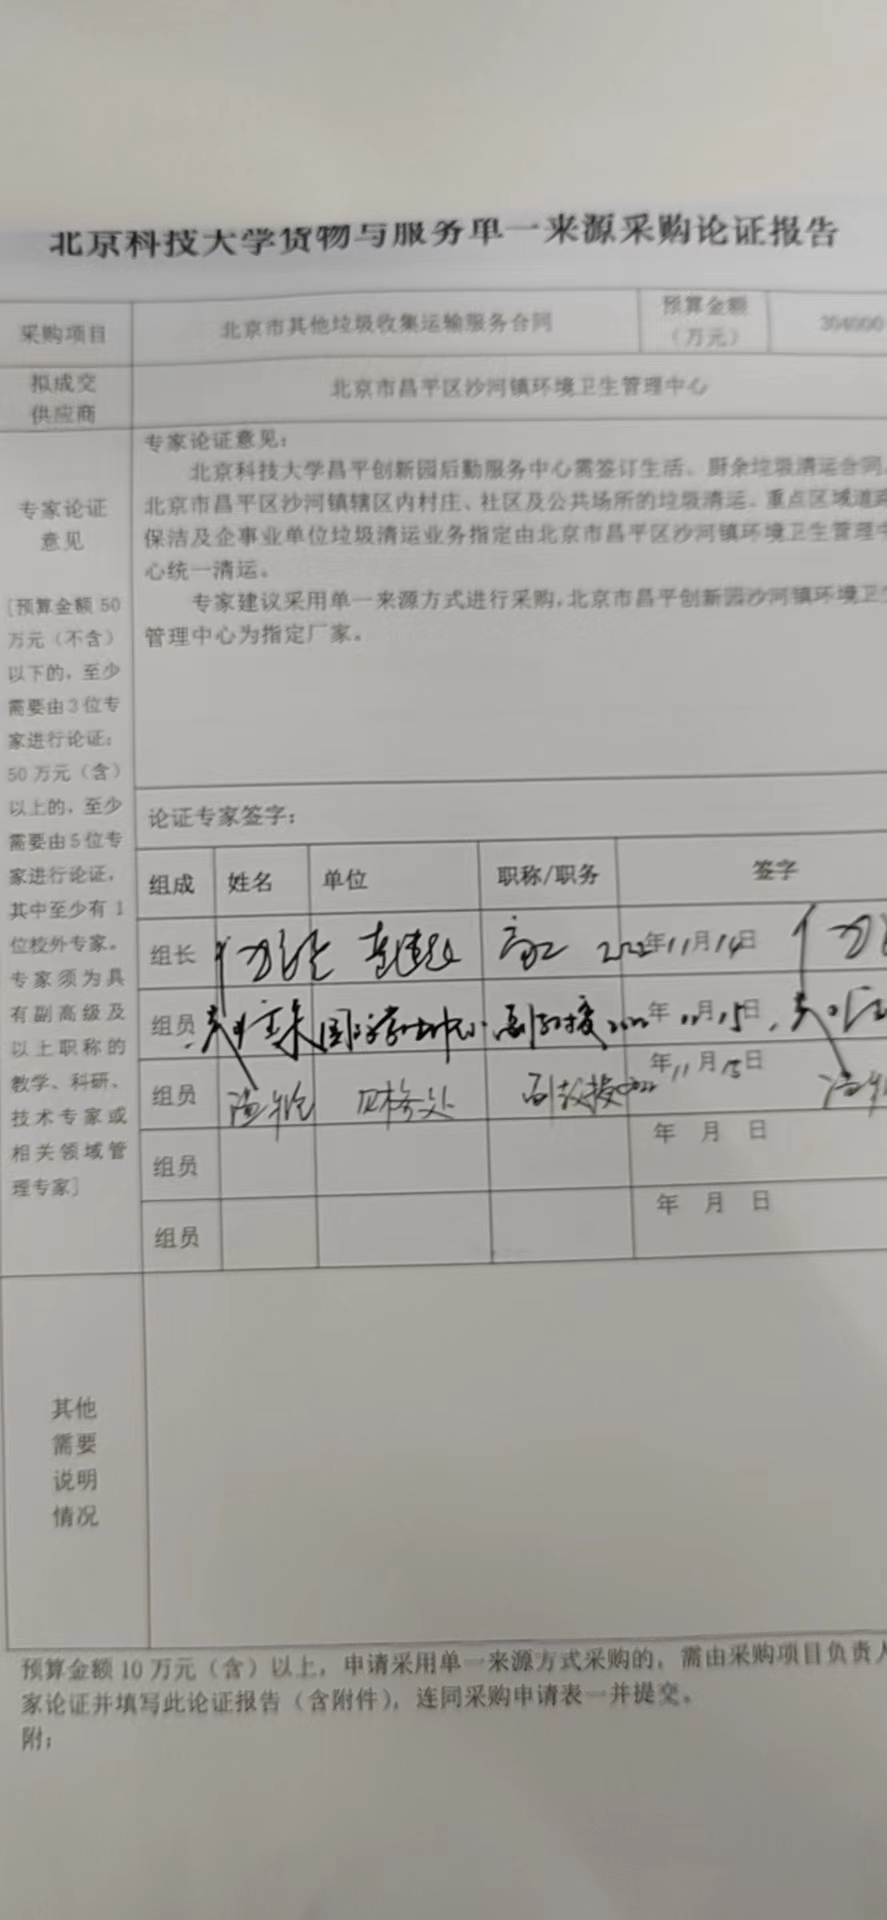 北京科技大学货物与服务单一来源采购论证报告
采购项目 北京市其他垃圾收集运输服务合同 预算金额（万元） 304000
拟成交供应商 北京市昌平区沙河镇环境卫生管理中心
专家论证意见
[预算金额 50
万元（不含）
以下的，至少
需要由3位专
家进行论证；
50万元（含）
以上的，至少
需要由5位专
家进行论证，
其中至少有 1
位校外专家。
专家须为具
有副高级及
以上职称的
教学、科研、
技术专家或
相关领域管
理专家]
专家论证意见：
北京科技大学昌平创新园后勤服务中心需签订生活、厨余垃圾清运合同，
北京市昌平区沙河镇辖区内村庄、社区及公共场所的垃圾清运、重点区域道
保洁及企事业单位垃圾清运业务指定由北京市昌平区沙河镇环境卫生管理
心统一清运。
专家建议采用单一来源方式进行采购，北京市昌平创新园沙河镇环境卫
管理中心为指定厂家。
论证专家签字：
组成 姓名 单位 职称/职务 签字
组长 高工 2022年11月14日
组员 副教授 年11月15日
组员 财务处 副教授 2022年11月15日
组员 年 月 日
组员 年 月 日
其他
需要
说明
情况
预算金额10万元（含）以上，申请采用单一来源方式采购的，需由采购项目负责人
家论证并填写此论证报告（含附件），连同采购申请表一并提交。
附：